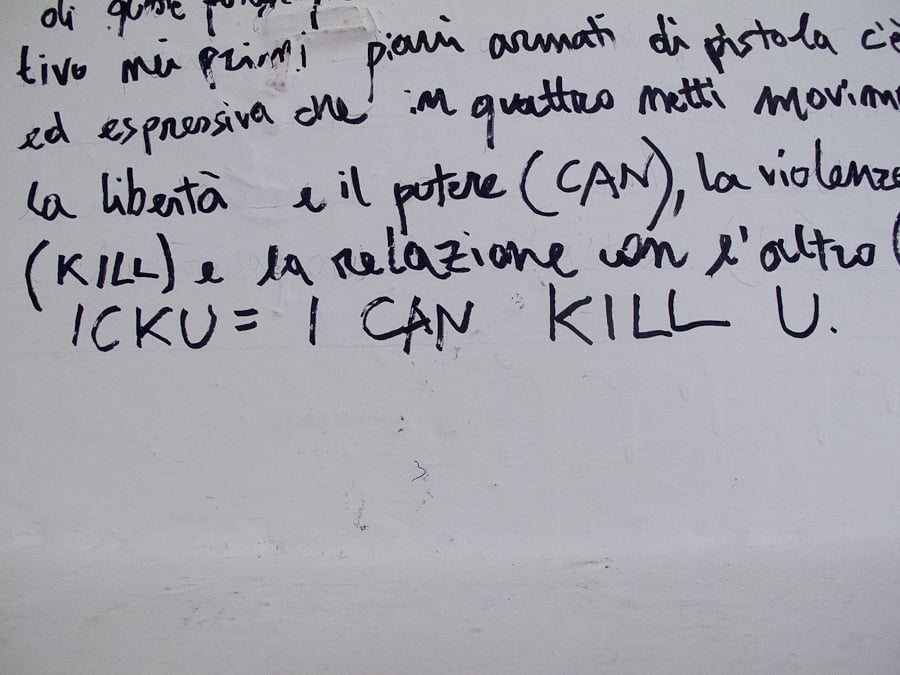 di queste
tivo nei primi piani armati di pistola c'è
ed espressiva che in quattro netti movim
la libertà e il potere (CAN), la violenza
(KILL) e la relazione con l'altro (
ICKU = I CAN KILL U.